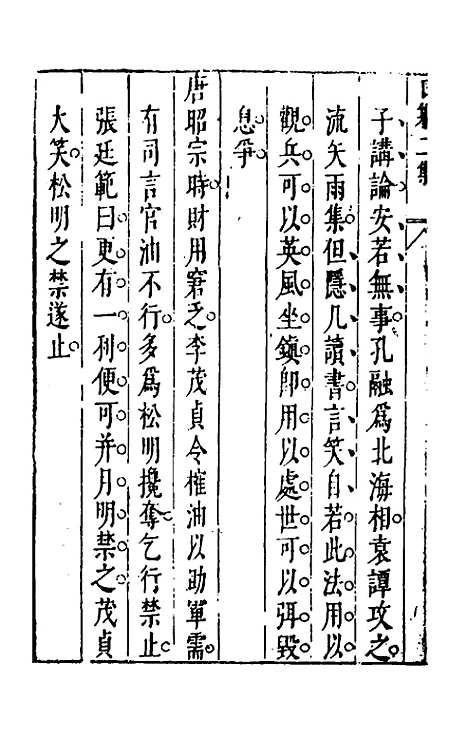 子講論安若無事孔融為北海相袁譚攻之
流矢雨集但隱几讀書言笑自若此法用以
觀兵可以英風坐鎮即用以處世可以弭毀
息爭
唐昭宗時財用窘乏李茂貞令榷油以助軍需
有司言官油不行多爲松明攙奪乞行禁止
張廷範曰更有一利便可并月明禁之茂貞
大笑松明之禁遂止